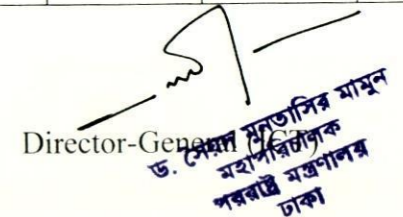 Director-General (ICT)
ড. সৈয়দ মুনতাসির মামুন
মহাপরিচালক
পররাষ্ট্র মন্ত্রণালয়
ঢাকা